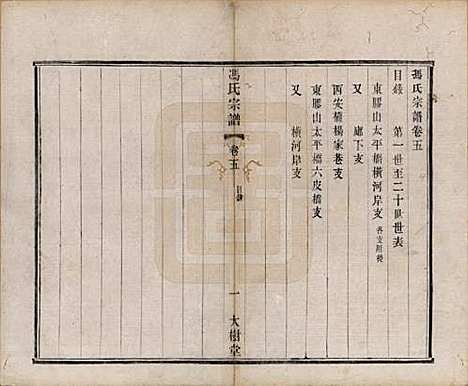 馮氏宗譜卷五
目錄　第一世至二十世世表
東膠山太平橋橫河岸支
又　廊下支
西安橋楊家巷支
東膠山太平橋六皮橋支
又　橫河岸支
馮氏宗譜
卷五
目錄
一
大樹堂